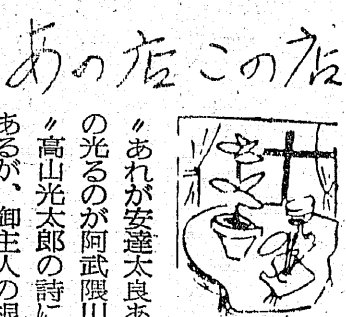 あの店この店
〃あれが安達太良あ
の光るのが阿武隈川
〃高山光太郎の詩に
あるが、御主人の